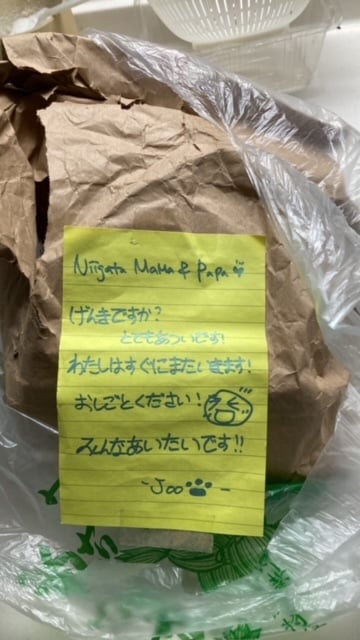 Niigata Mama & Papa
げんきですか?
とてもあついです!
わたしはすぐにまたいきます!
おしごとください!
みんなあいたいです!!
-Joo -